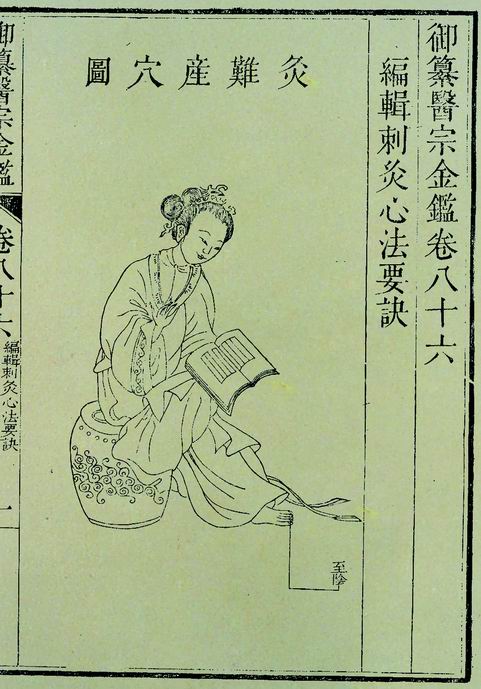 御纂醫宗金鑑卷八十六
編輯刺灸心法要訣
灸難産穴圖
至陰
御纂醫宗金鑑
卷八十六
編輯刺灸心法要訣
一